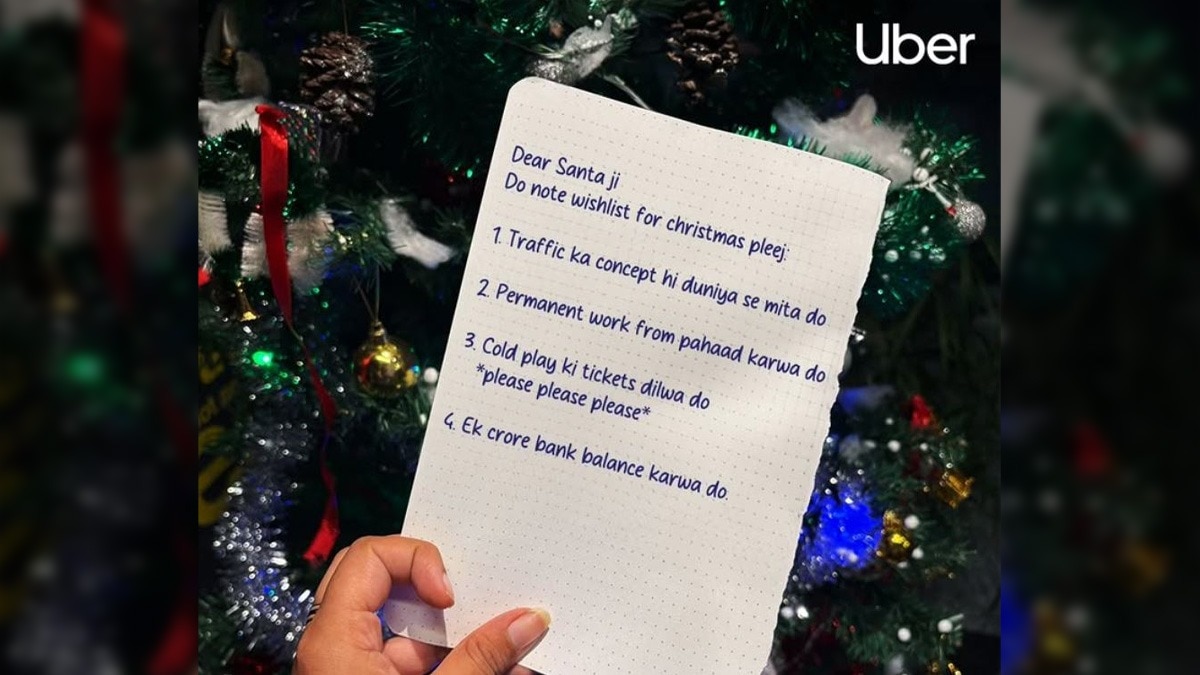 Uber
Dear Santa ji
Do note wishlist for christmas pleej:
1. Traffic ka concept hi duniya se mita do
2. Permanent work from pahaad karwa do
3. Cold play ki tickets dilwa do
*please please please*
4. Ek crore bank balance karwa do.